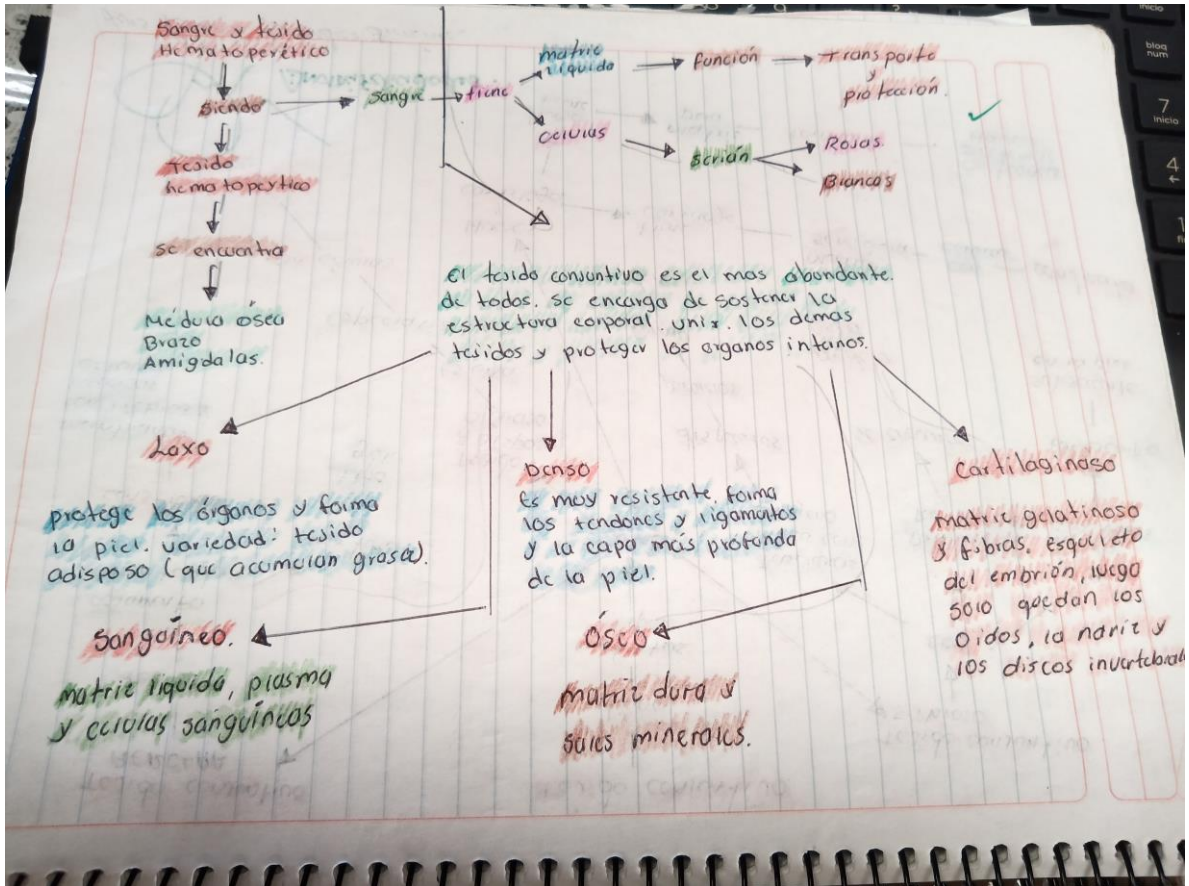 Sangre y tejido
Hematoperético
siendo
sangre
tiene
matriz
liquida
función
transporte
y
protección.
células
serián
Rojas.
Blancas
Tejido
hematopeytico
se encuentra
Médula ósea
Brazo
Amigdalas.
El tejido conjuntivo es el mas abundante.
de todos. se encarga de sostener la
estructura corporal. unir. los demas
tejidos y proteger los organos internos.
Laxo
protege los órganos y forma
la piel. variedad: tejido
adisposo (que acumulan grasa).
Denso
Es muy resistente, forma
los tendones y ligamentos
y la capa más profunda
de la piel.
Cartilaginoso
matriz gelatinoso
y fibras, esqueleto
del embrión, luego
solo quedan los
oidos, la nariz y
los discos invertebrale
Sanguíneo.
matriz liquida, plasma
y células sanguíneas
Óseo
matriz dura y
sales minerales.
inicio
bloq
num
7
inicio
4
1